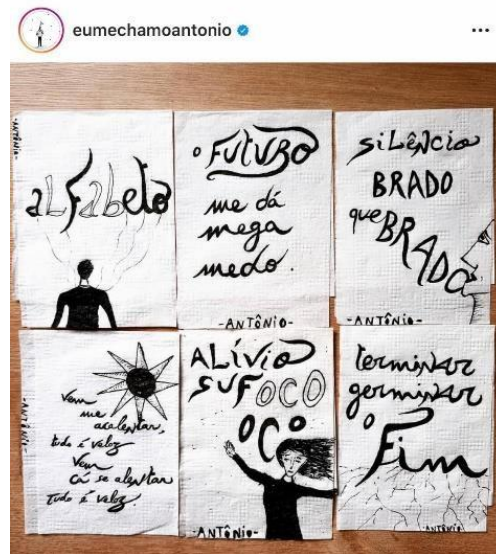 eumechamoantonio
-ANTÔNIO-
aLFabeto
o FUTURO
me dá
mega
medo.
-ANTÔNIO-
SiLÊNCiO
BRADO
que BRADO
-ANTÔNIO-
-ANTÔNIO-
Vem
me
acalentar,
tudo é veloz
Vem
cá se alentar
tudo é veloz.
ALÍViO
SUFOCO
OCO
-ANTÔNIO-
terminar
germinar
o
Fim
-ANTÔNIO-